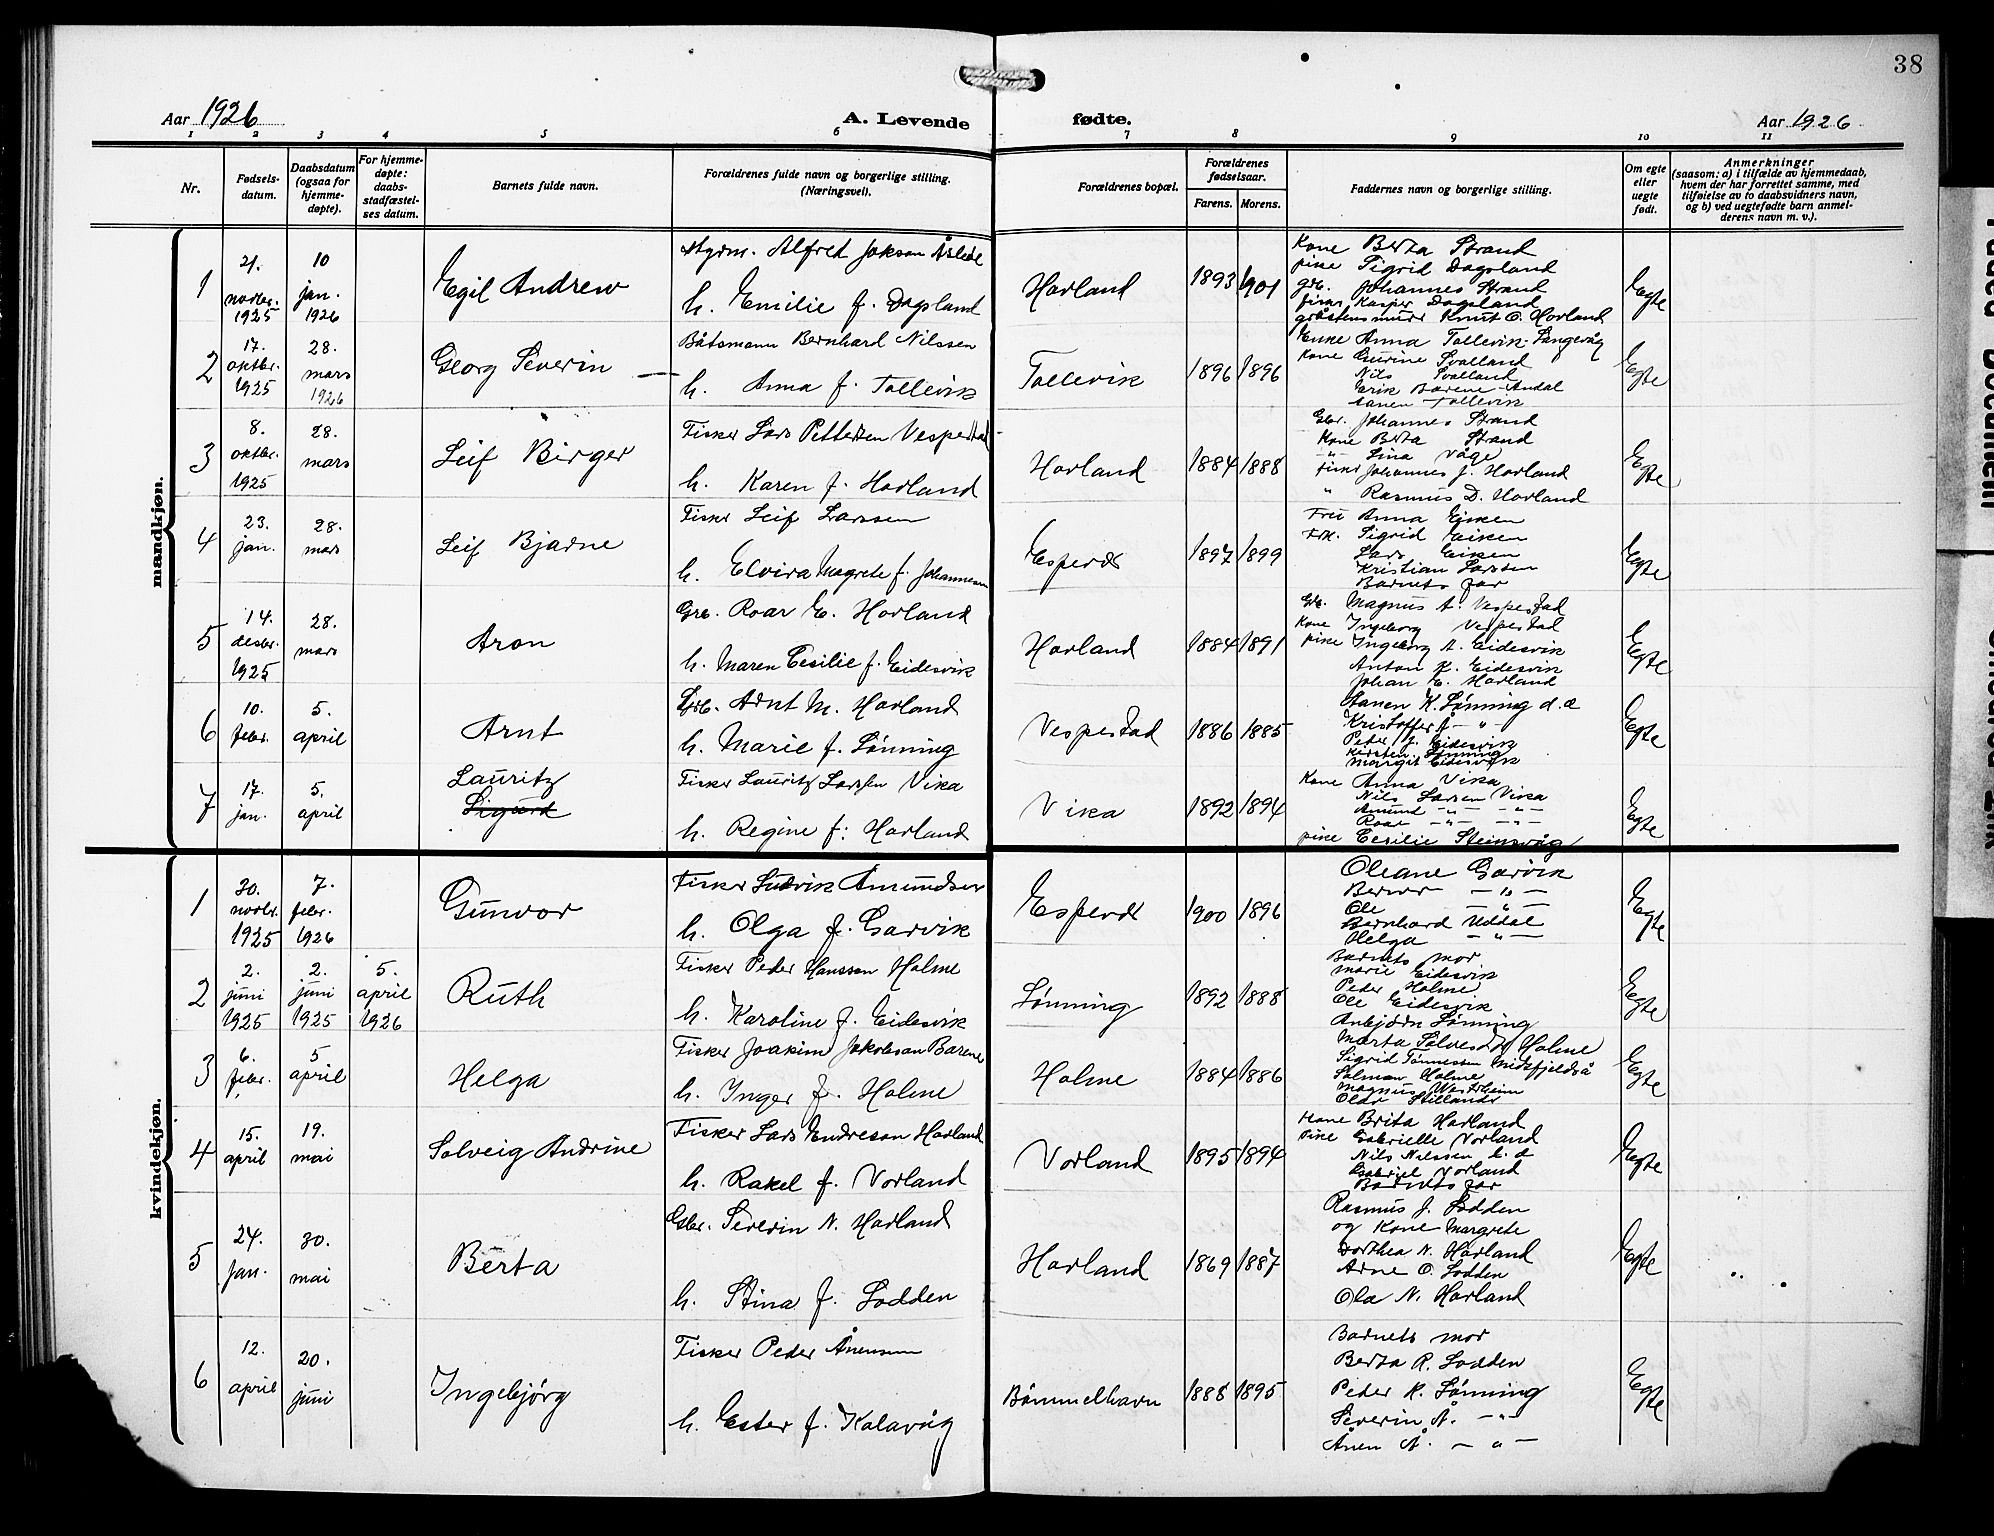 38
Aar 1926
A. Levende fødte.
Aar 1926
1 2 3 4 5 6 7 8 9 10 11
Nr.
Fødsels-datum.
Daabsdatum (ogsaa for hjemme-døpte).
For hjemme-døpte: daabs-stadfæstel-ses datum.
Barnets fulde navn.
Forældrenes fulde navn og borgerlige stilling. (Næringsvei).
Forældrenes bopæl.
Forældrenes fødselsaar.
Farens. Morens.
Faddernes navn og borgerlige stilling.
Om egte eller uegte født.
Anmerkninger
(saasom: a) i tilfælde av hjemmedaab,
hvem der har forrettet samme, med
tilføielse av to daabsvidners navn,
og b) ved uegtefødte barn anmel-
derens navn m. v.).
mandkjøn.
1 21. novbr. 1925 10 jan. 1926 Egil Andrew
Styrm. Alfred Jakson Åslede
h. Emilie f. Dagsland
Horland 1893 1901
Kone Berta Strand
pike Sigrid Dagsland
gbr. Johannes Strand
fisker Kasper Dagsland
gråstensmurer Knut O. Horland
Egte
2 17. oktbr. 1925 28. mars 1926 Georg Severin
Båtsmann Bernhard Nilssen
h. Anna f. Tollevik
Tollevik 1896 1896
Enke Anna Tollevik-Langevåg
Kone Gurine Svolland
Nils Svolland
Erik Barene-Andal
Aanen Tollevik
Egte
3 8. oktbr. 1925 28. mars Leif Birger
Fisker Lars Pettersen Vespestad
h. Karen f. Horland
Horland 1884 1888
Gbr. Johannes Strand
Kone Berta Strand
-"- Lina Våge
Fisker Johannes J. Horland
" Rasmus D. Horland
Egte
4 23. jan. 28. mars Leif Bjarne
Fisker Leif Larssen
h. Elvira Magrete f. Johannesen
Espevær 1897 1899
Fru Anna Eiken
Frk. Sigrid Eiken
Lars Eiken
Kristian Larsen
Barnets far
Egte
5 14. desbr. 1925 28. mars Aron
Grb. Roar E. Horland
h. Maren Cesilie f. Eidesvik
Horland 1884 1891
Gbr. Magnus A. Vespestad
Kone Ingeborg Vespestad
pike Ingeborg A. Eidesvik
Anton K. Eidesvik
Johan E. Horland
Egte
6 10. febr. 5. april Arnt
Grb. Arnt M. Horland
h. Marie f. Lønning
Vespestad 1886 1885
Aanen K. Lønning d. e
Kristoffer J. - " -
Peter J. Eidesvik
Kirsten Lønning
Margit Eidesvik
Egte
7 17. jan. 5. april Lauritz
Sigurd
Fisker Lauritz Larsen Vika
h. Regine f: Horland
Vika 1892 1894
Kone Anna Vika
Nils Larsen Vika
Amund -"- -"-
Roar -"- -"-
pike Cesilie Steinsvåg
Egte
kvindekjøn.
1 30. novbr. 1925 7. febr. 1926 Gunvor
Fisker Ludvik Amundsen
h. Olga f. Garvik
Espevær 1900 1896
Oleane Garvik
Berner -"-
Ole -"-
Bernhard Uddal
Helga -"-
Egte
2 2. juni 1925 2. juni 1925 5. april 1926 Ruth
Fisker Peder Hanssen Holme
h. Karoline f. Eidesvik
Lønning 1892 1888
Barnets mor
Marie Eidesvik
Peder Holme
Ole Eidesvik
Anbjørn Lønning
Egte
3 6. febr. 5 april Helga
Fisker Joakim Jakobsen Barene
h. Inger f. Holme
Holme 1884 1886
Marta Holme
Sigrid Tønnessen Midtfjeldså
Salmon Holme
Magnus Westrheim
Oldr Stillandr
Egte
4 15. april 19. mai Solveig Andrine
Fisker Lars Endreson Horland
h. Rakel f. Vorland
Vorland 1895 1894
Kone Brita Horland
Pike Gabrielle Vorland
Nils Nilssen h. d
Gabriel Vorland
Barnets far
Egte
5 24. jan. 30. mai Berta
Gbr. Severin N. Horland
h. Stina f. Lodden
Horland 1869 1887
Rasmus J. Lodden
og Kone Margrete
Dorthea N. Horland
Arne O. Lodden
Ola N. Horland
Egte
6 12. april 20. juni Ingebjörg
Fisker Peder Ånensen
h. Ester f. Kalavåg
Bømmelhavn 1888 1895
Barnets mor
Berta R. Lodden
Peder K. Lønning
Severin Å. -"-
Ånen Å. -"-
Egte